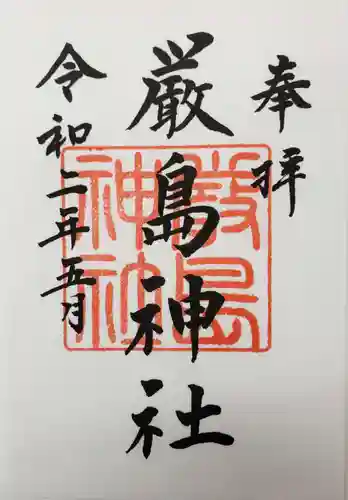 奉拝
厳島神社
令和二年五月
厳島神社